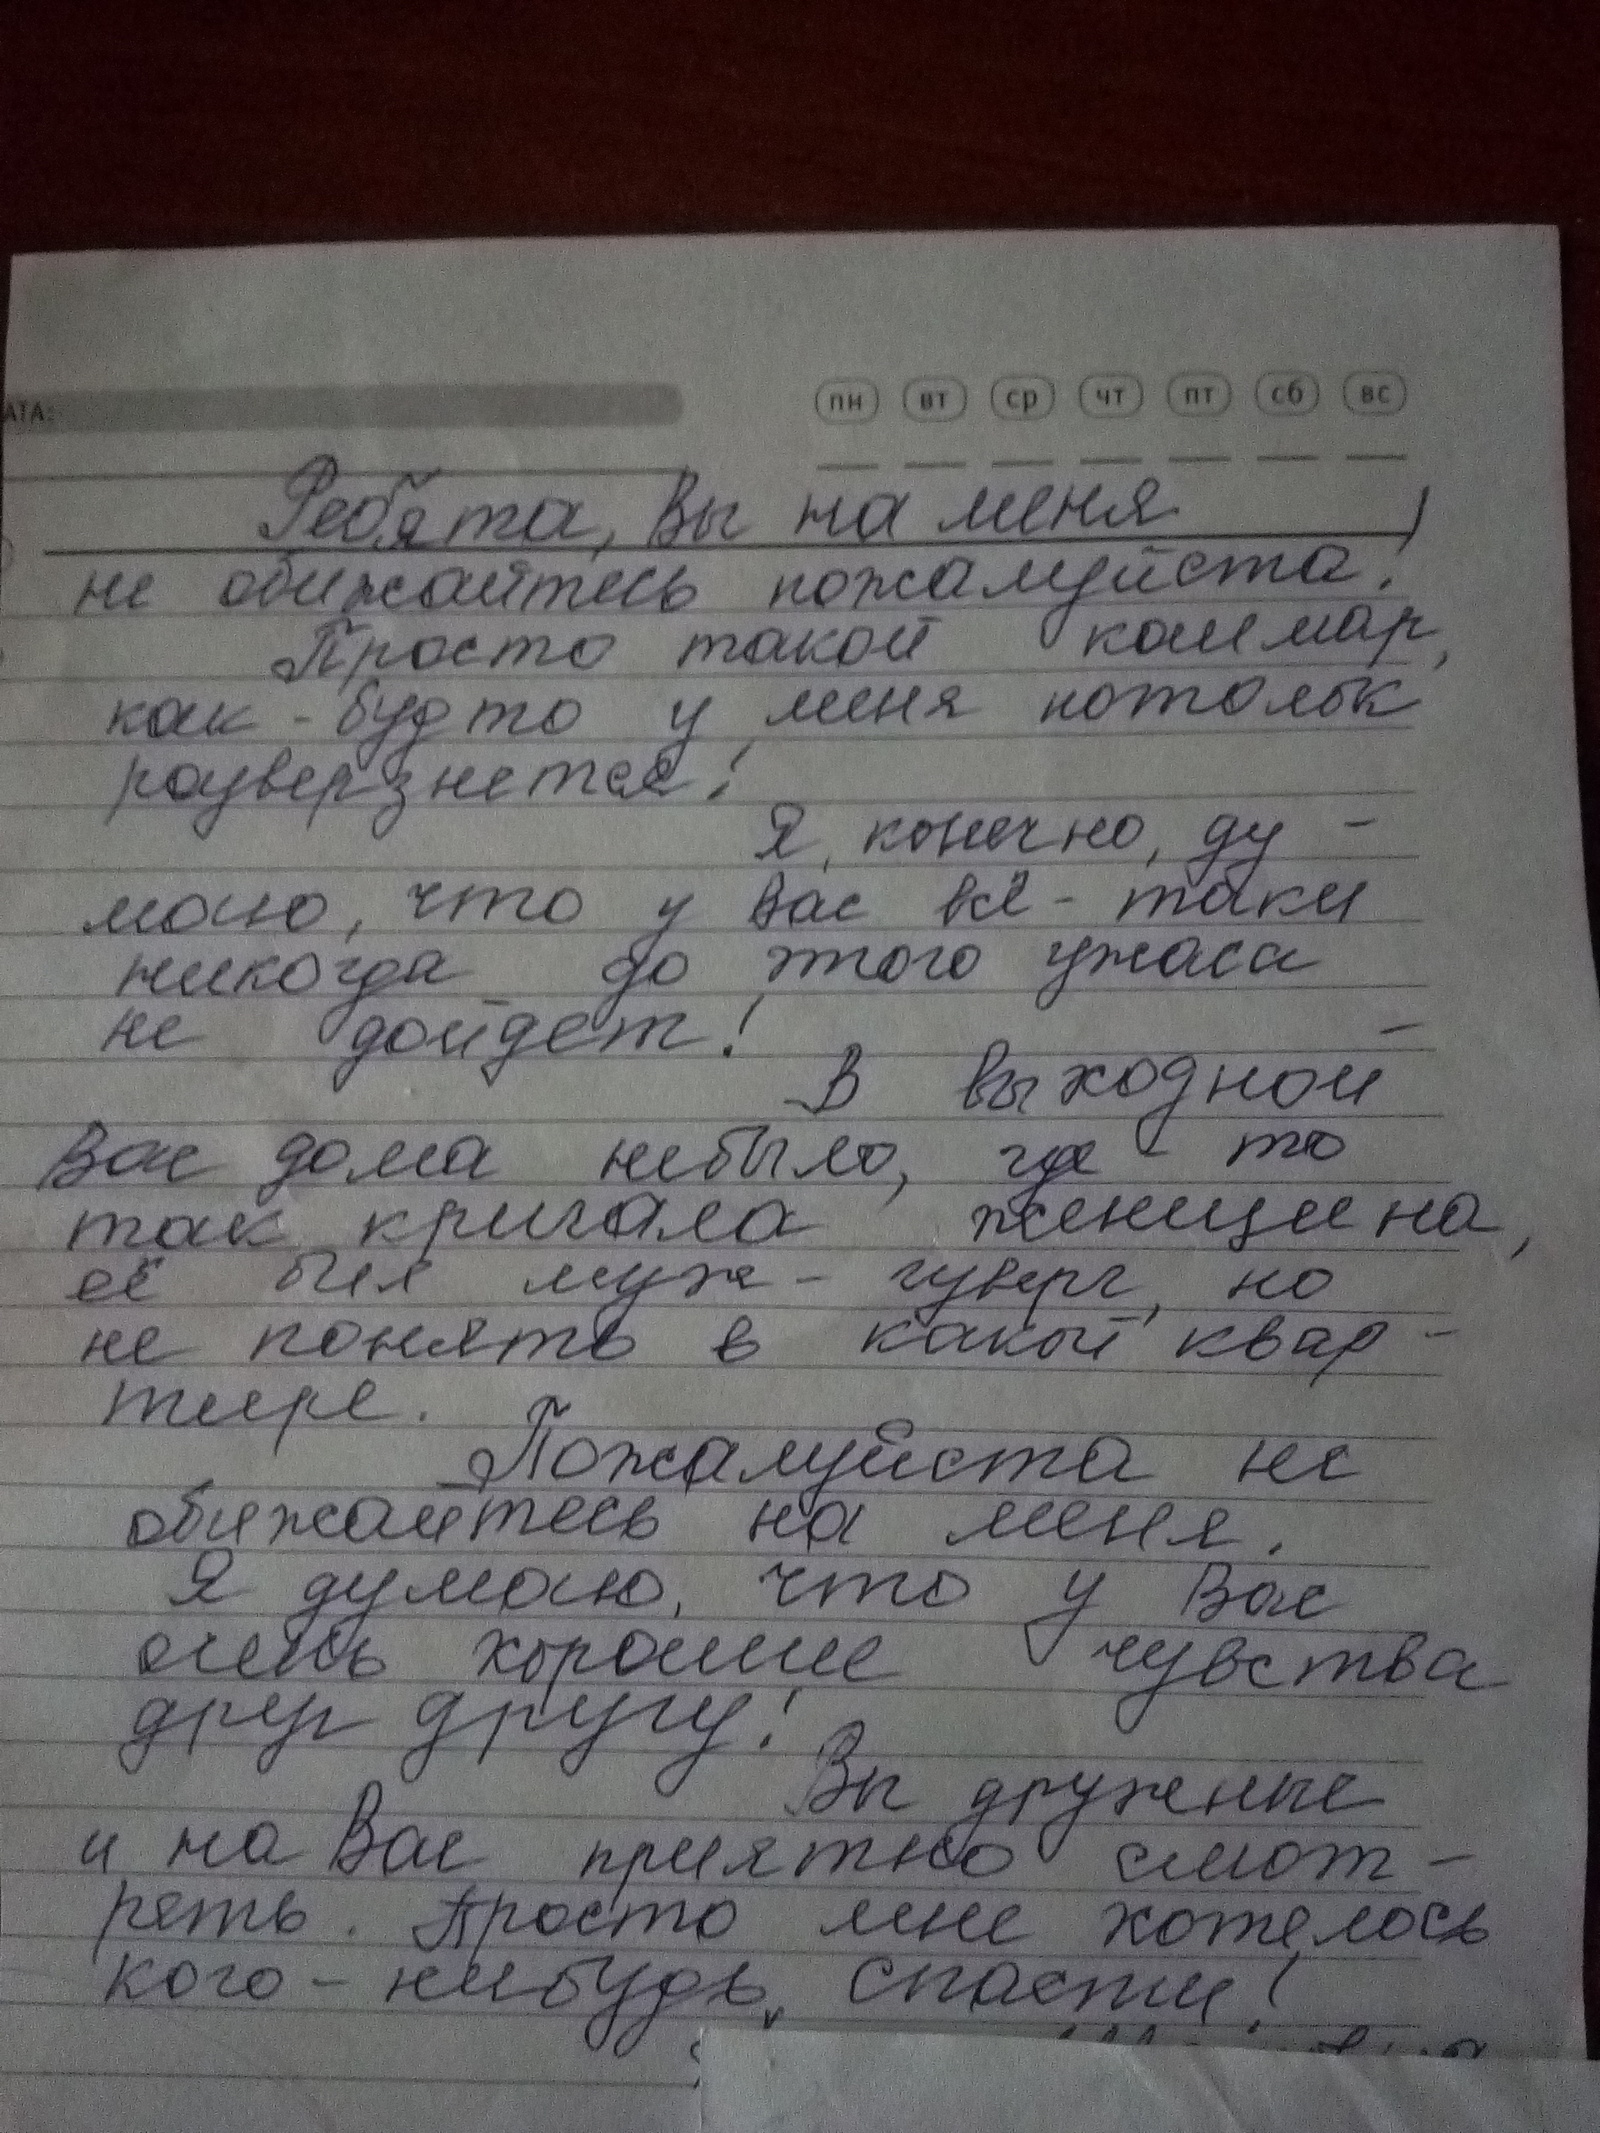 АТА:
пн вт ср чт пт сб вс
Ребята, Вы на меня
не обижайтесь пожалуйста!
Просто такой кошмар,
как-будто у меня потолок
разверзнется!
Я, конечно, ду-
маю, что у Вас всё-таки
никогда до этого ужаса
не дойдет!
В выходной
Вас дома небыло, где-то
так кричала женщина,
её бил муж-изверг, но
не понять в какой квар-
тире.
Пожалуйста не
обижайтесь на меня.
Я думаю, что у Вас
очень хорошие чувства
друг другу!
Вы дружные
и на Вас приятно смот-
реть. Просто мне хотелось
кого-нибудь спасти!